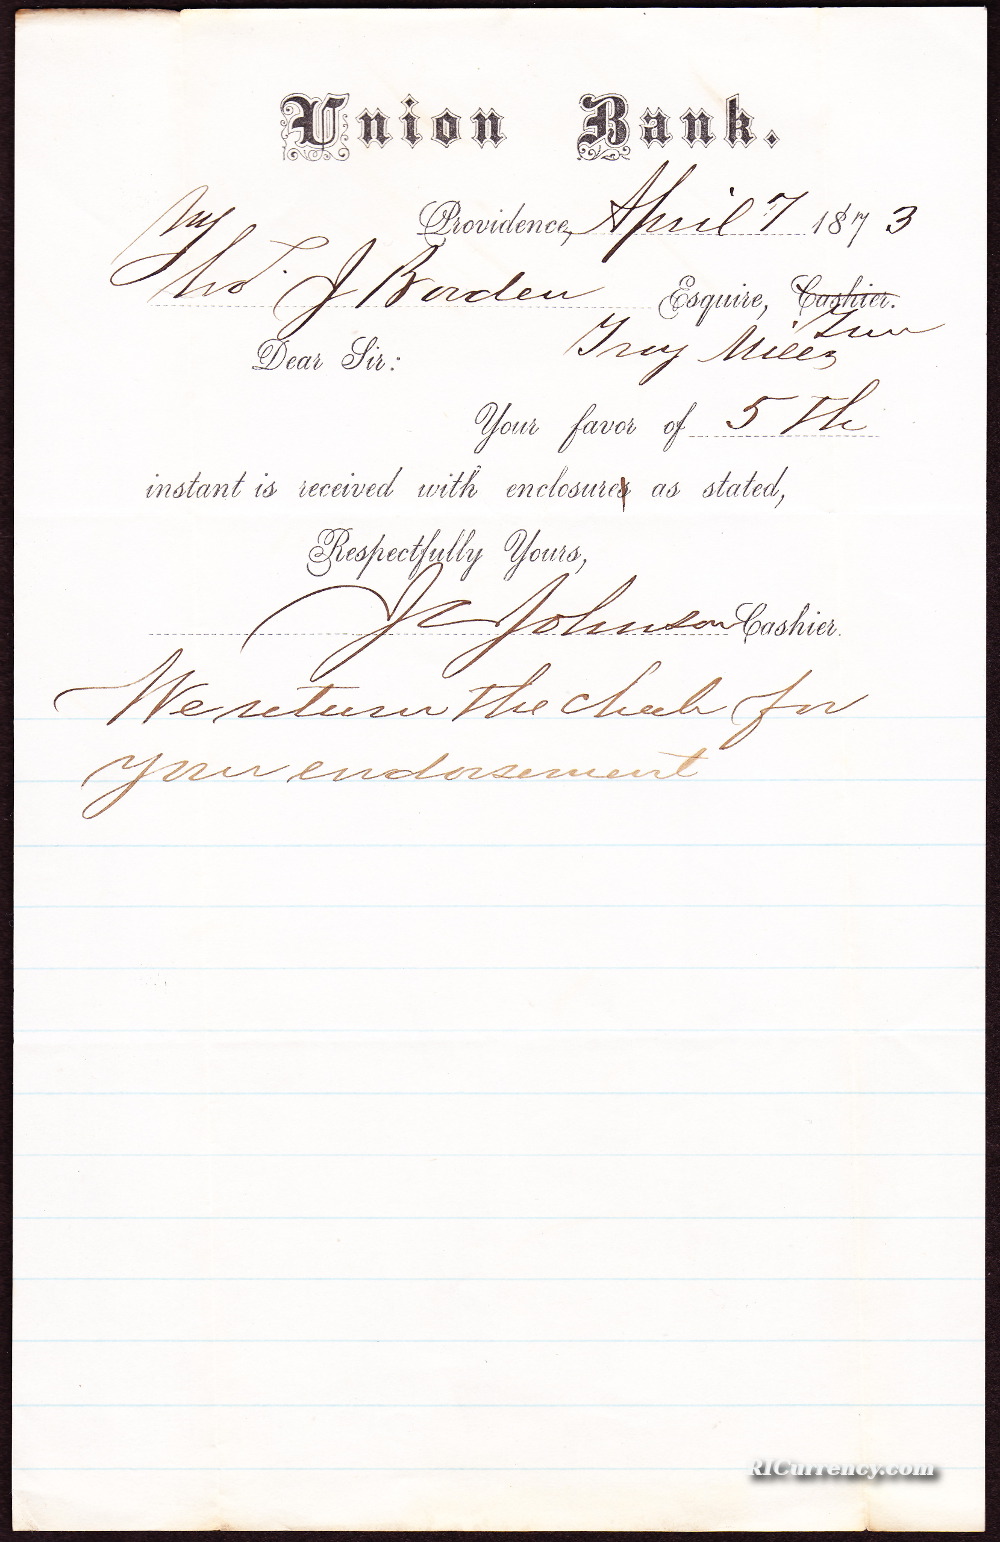 Union Bank.
Providence, April 7 1873
Thos. J Borden Esquire, Cashier.
Dear Sir: Troy Mills
Your favor of 5th
instant is received with enclosures as stated,
Respectfully Yours,
J C Johnson Cashier.
We return the check for
your endorsement
RICurrency.com